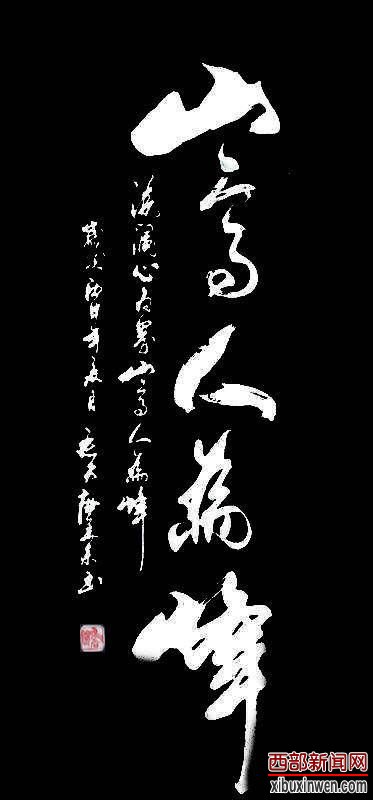 山高人為峰
海阔心为界山高人為峰
歲次年夏月书
西部新闻网
xibuxinwen.com